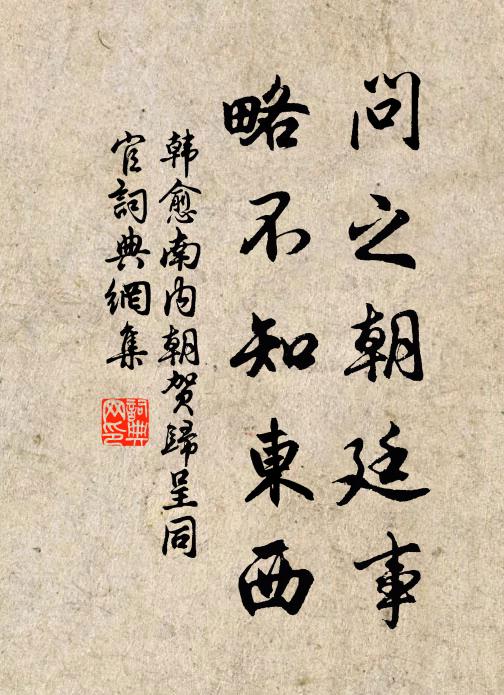 問之朝廷事
略不知東西
韩愈南内朝贺歸呈同
官詞典網集
詞典
网印